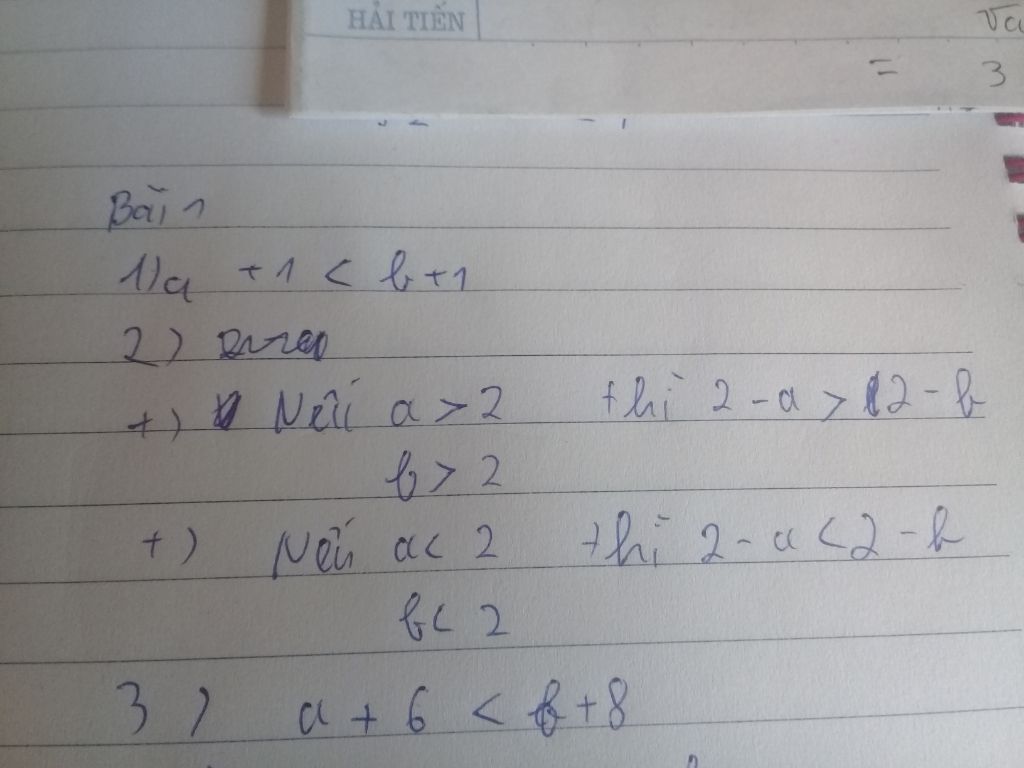 HẢI TIẾN
= 3
Bài 1
1) a + 1 < b + 1
2)
+) Nếu a > 2 thì 2 - a > 2 - b
b > 2
+) Nếu a < 2 thì 2 - a < 2 - b
b < 2
3) a + 6 < b + 8